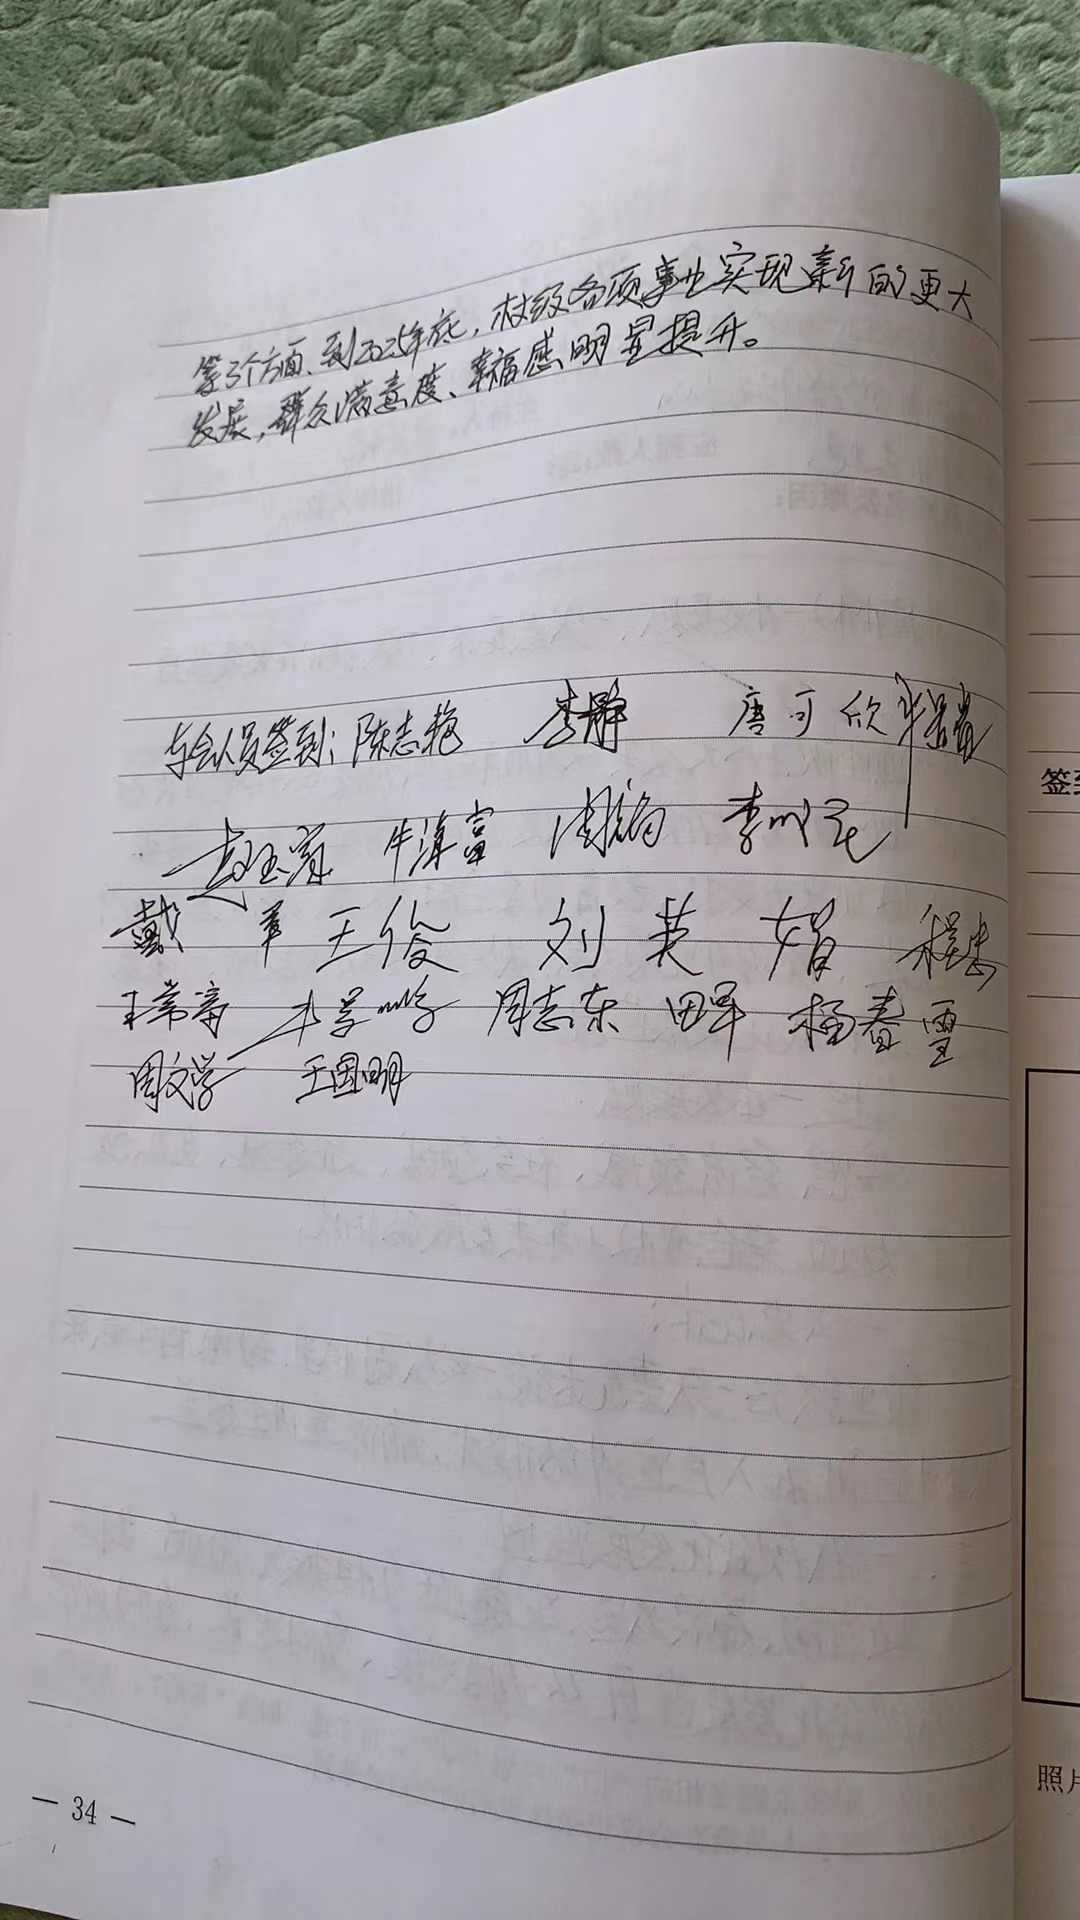 等3个方面、到2025年底，村级各项事业实现新的更大
发展，群众满意度、幸福感明显提升。
与会人员签到：陈志艳 李静 唐可欣
牛海富 李成元
戴军 王俊 刘英娟
王常亭 李学鹏 周志东 田军 杨春雪
周文学 王国明
签到
照片
— 34 —